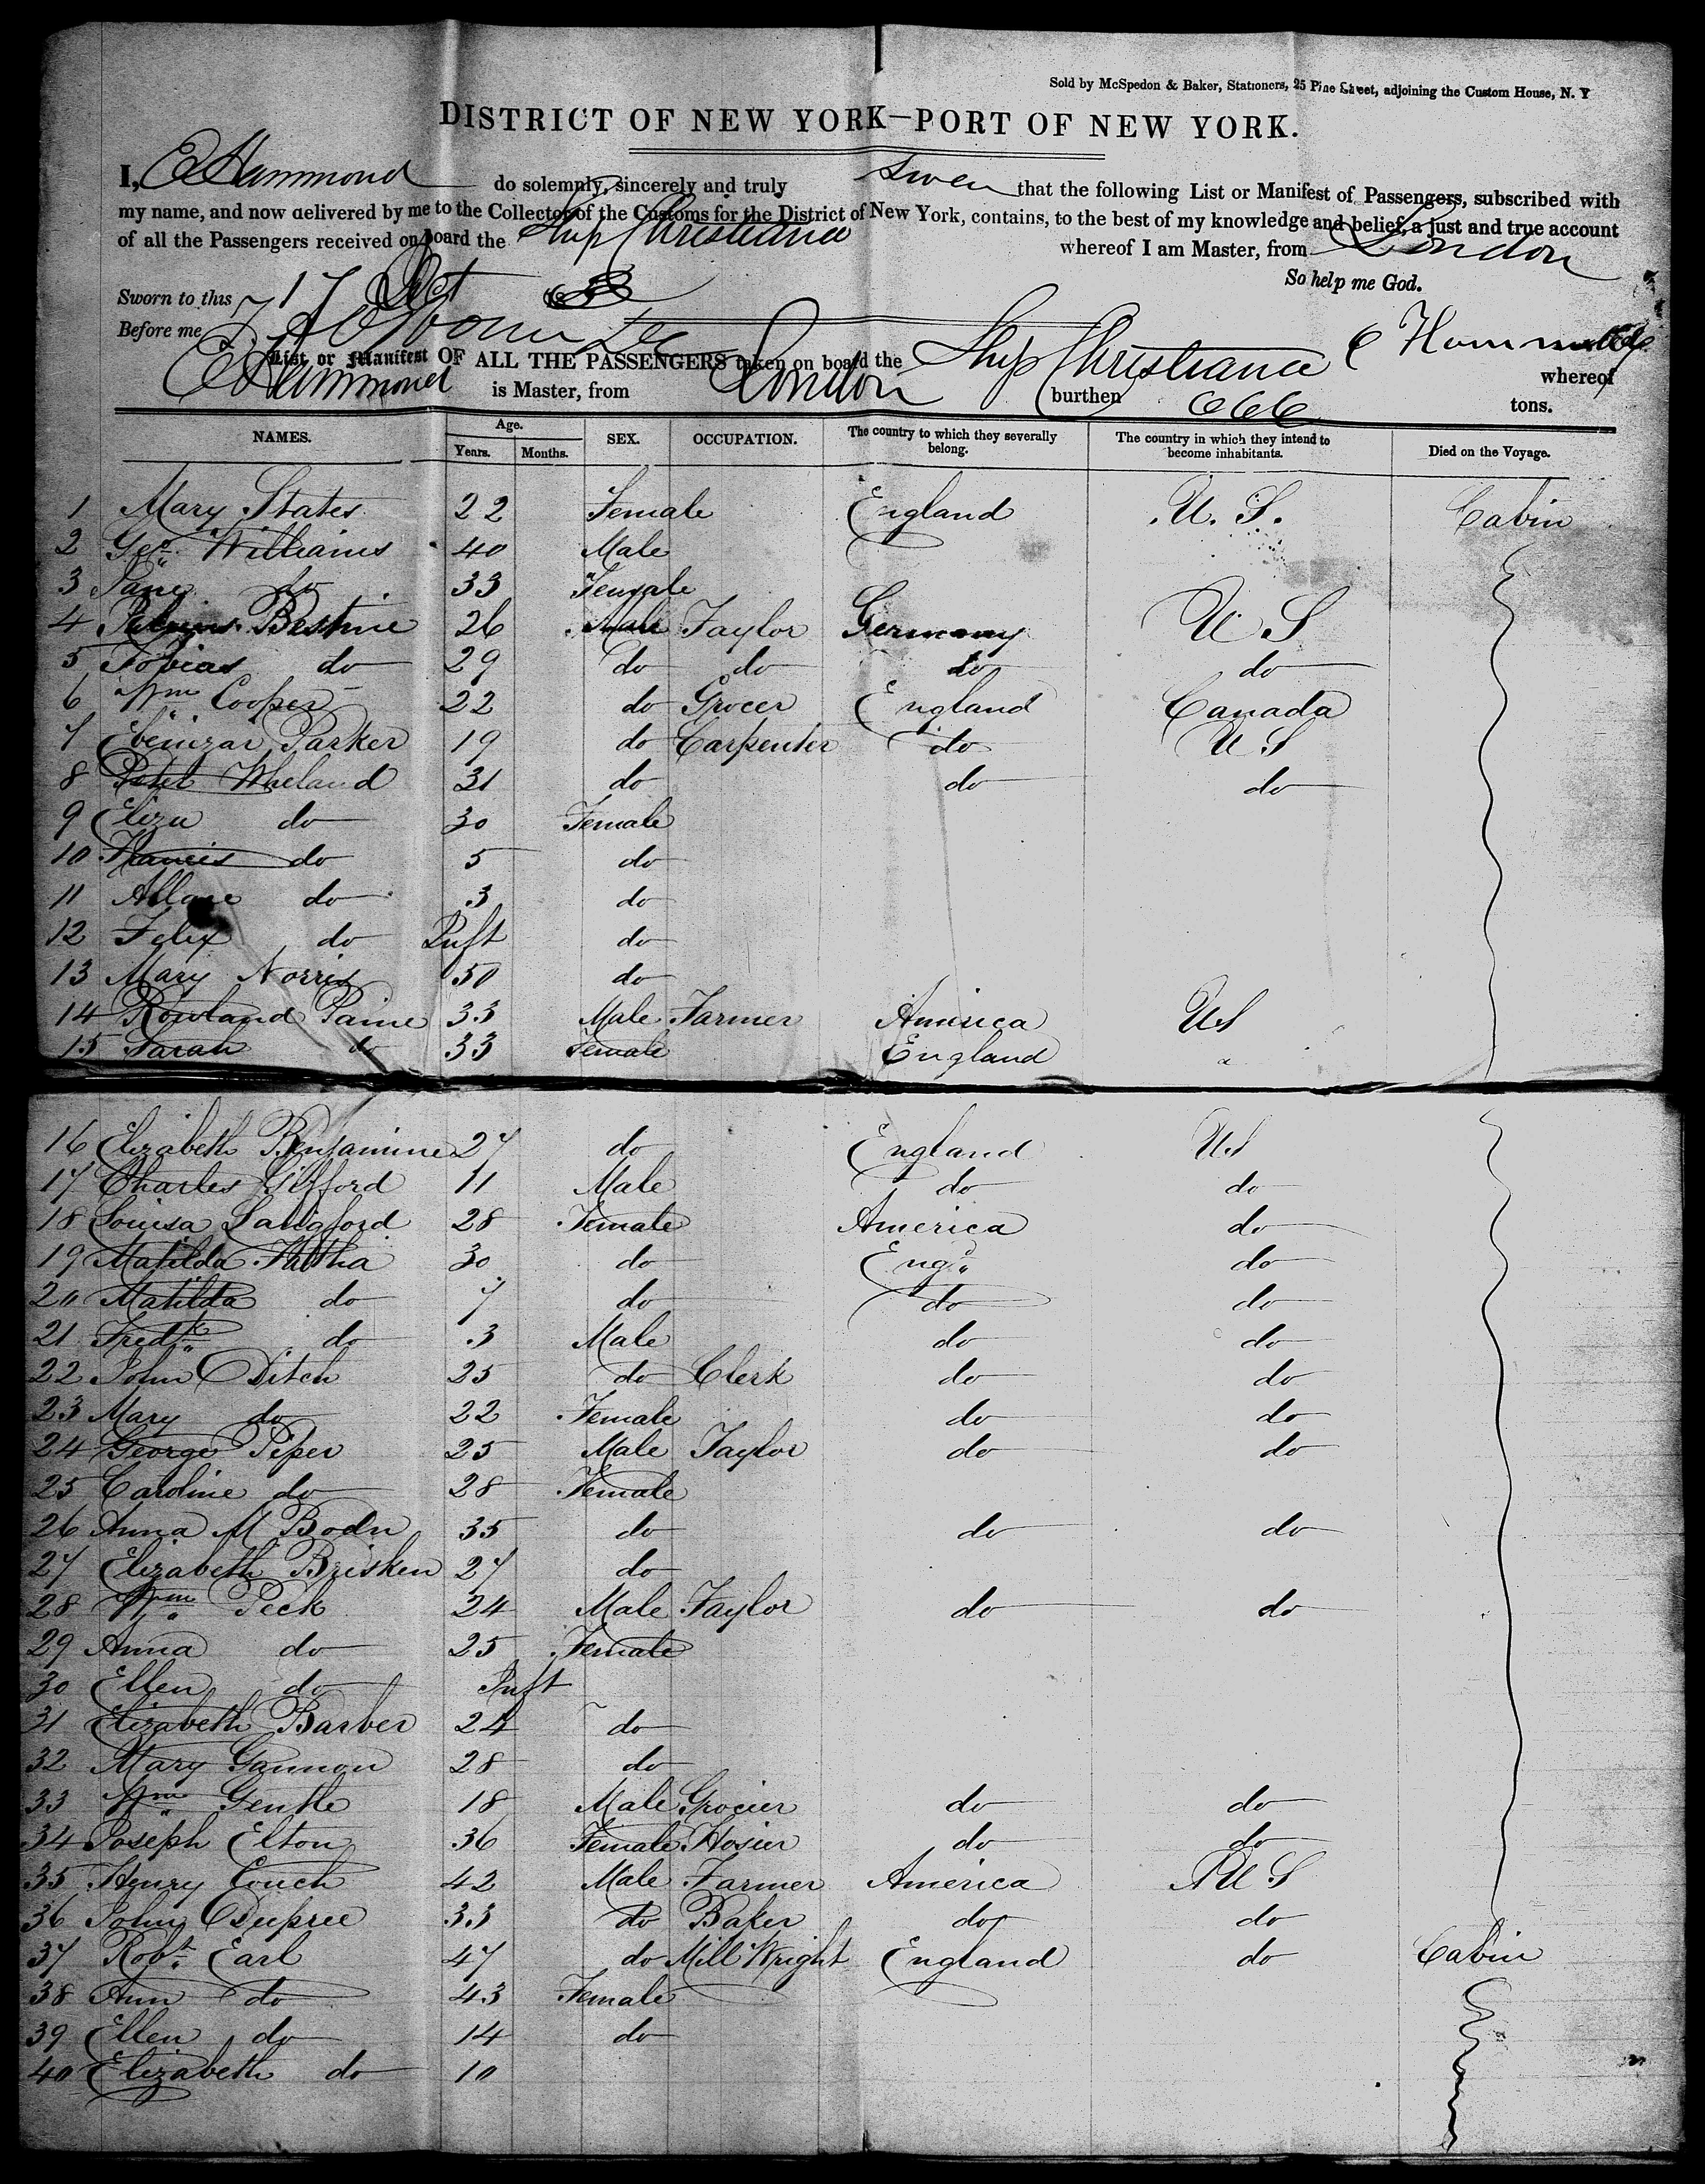 Sold by McSpedon & Baker, Stationers, 25 Pine Street, adjoining the Custom House, N. Y
DISTRICT OF NEW YORK—PORT OF NEW YORK.
I, E Hammond do solemnly, sincerely and truly swear that the following List or Manifest of Passengers, subscribed with
my name, and now delivered by me to the Collector of the Customs for the District of New York, contains, to the best of my knowledge and belief, a just and true account
of all the Passengers received on board the Ship Christiana whereof I am Master, from London
So help me God.
Sworn to this 17 Oct 18
Before me
E Hammond
List or Manifest OF ALL THE PASSENGERS taken on board the Ship Christiana whereof
E Hammond is Master, from London burthen 666 tons.
NAMES. Age. SEX. OCCUPATION. The country to which they severally belong. The country in which they intend to become inhabitants. Died on the Voyage.
Years. Months.
1 Mary States 22 Female England U. S. Cabin
2 Geo Williams 40 Male
3 Jane do 33 Female
4 Bestine 26 Male Taylor Germany U S
5 Tobias do 29 do do do do
6 Wm Cooper 22 do Grocer England Canada
7 Ebenizar Parker 19 do Carpenter do U S
8 Wheland 31 do do do
9 Eliza do 30 Female
10 Francis do 5 do
11 do 3 do
12 Felix do Inft do
13 Mary Norris 50 do
14 Rowland Paine 33 Male Farmer America US
15 Sarah do 33 Female England "
16 Elizabeth Benjamine 27 do England US
17 Charles Gifford 11 Male do do
18 Louisa Langford 28 Female America do
19 Matilda 30 do Engd do
20 Matilda do 7 do do do
21 Fredk do 3 Male do do
22 John Ditch 25 do Clerk do do
23 Mary do 22 Female do do
24 George Piper 25 Male Taylor do do
25 Caroline do 28 Female
26 Anna M Bodn 35 do do do
27 Elizabeth Brisken 27 do
28 Wm Peck 24 Male Taylor do do
29 Anna do 25 Female
30 Ellen do Inft
31 Elizabeth Barber 24 do
32 Mary Gannon 28 do
33 Wm Gentle 18 Male Grocier do do
34 Joseph Elton 36 Female Hosier do do
35 Henry Couch 42 Male Farmer America U S
36 John Dupree 33 do Baker do do
37 Robt Earl 47 do Mill Wright England do Cabin
38 Ann do 43 Female
39 Ellen do 14 do
40 Elizabeth do 10